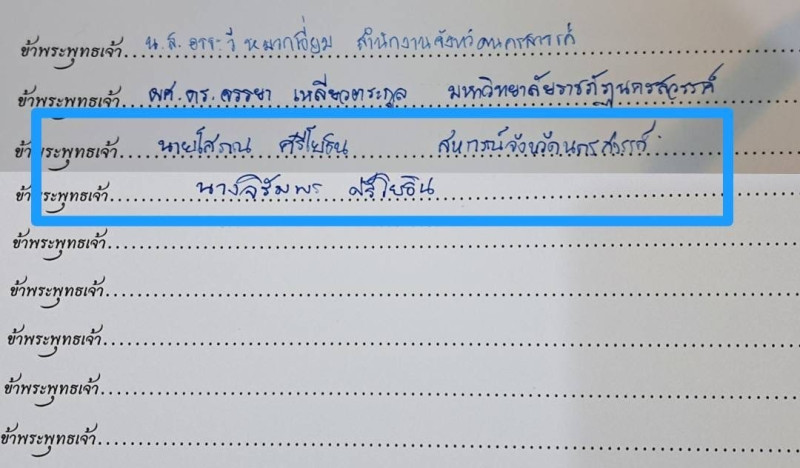 ข้าพระพุทธเจ้า น.ส. อระวี หมากเอี่ยม สำนักงานจังหวัดนครสวรรค์
ข้าพระพุทธเจ้า ผศ.ดร. อรรยา เหลียวตระกูล มหาวิทยาลัยราชภัฏนครสวรรค์
ข้าพระพุทธเจ้า นายโสภณ ศรีโยธิน สหกรณ์จังหวัดนครสวรรค์
ข้าพระพุทธเจ้า นางจิรัมพร ศรีโยธิน
ข้าพระพุทธเจ้า
ข้าพระพุทธเจ้า
ข้าพระพุทธเจ้า
ข้าพระพุทธเจ้า
ข้าพระพุทธเจ้า